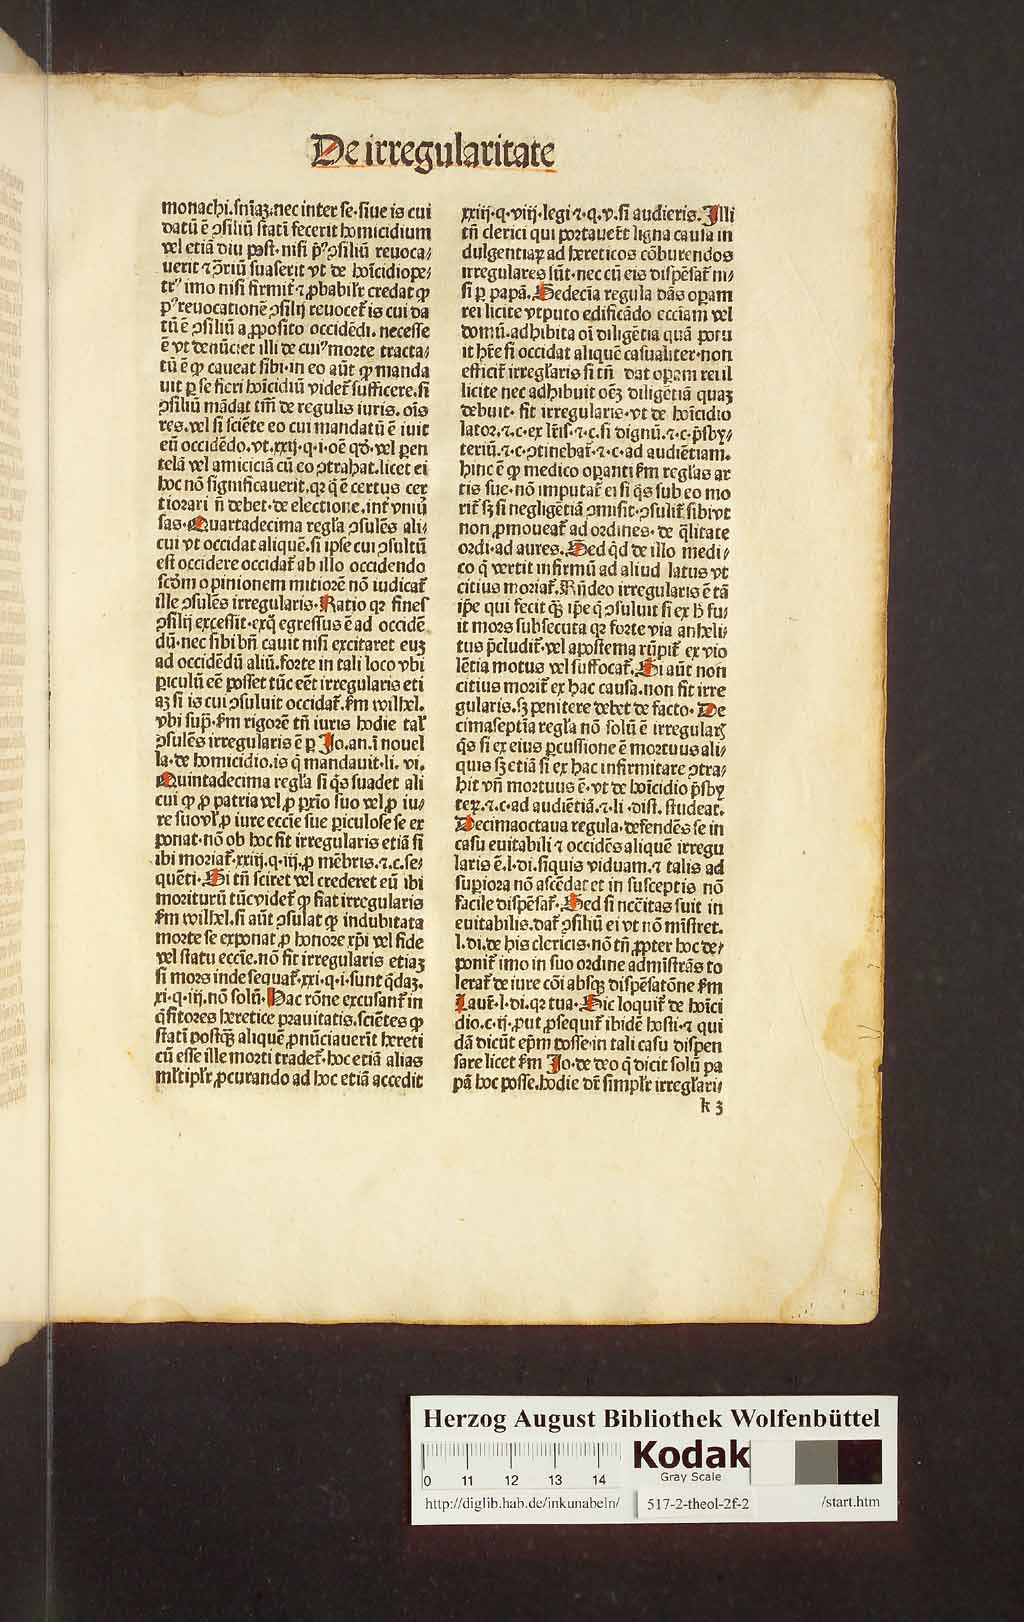 De irregularitate
monachi.snĩaʒ.nec inter se.siue is cui
datũ ẽ ꝯsiliũ statĩ fecerit homicidium
vel etiã diu post.nisi p̃ꝰ ꝯsiliũ reuoca/
uerit ⁊ ꝯ̃riũ suaserit vt de hoĩcidiope/
trꝰ imo nisi firmit̃ ⁊ ꝓbabilr̃ credat ꝙ
pꝰ reuocationẽ ꝯsilij reuocet̃ is cui da
tũ ẽ ꝯsiliũ a ꝓposito occidẽdi. necesse
ẽ vt denũciet illi de cuiꝰ morte tracta/
tũ ẽ ꝙ caueat sibi.in eo aũt ꝙ manda
uit ꝑ se fieri hoĩcidiũ videt̃ sufficere.si
ꝯsiliũ mãdat tm̃ de regulis iuris. oĩs
res.vel si sciẽte eo cui mandatũ ẽ iuit
eũ occidẽdo.vt.xxij.q.i.oẽ qd̃.vel pen
telã vel amiciciã cũ eo ꝯtrahat.licet ei
hoc nõ significauerit.qꝛ q̃ ẽ certus cer
tiorari ñ debet.de electione.int̃ vniũ
sas.Quartadecima regl̃a ꝯsulẽs ali/
cui vt occidat aliquẽ.si ipse cui ꝯsultũ
est occidere occidat̃ ab illo occidendo
scd̃m opinionem mitiorẽ nõ iudicat̃
ille ꝯsulẽs irregularis.Ratio qꝛ fines
ꝯsilij excessit.exq̃ egressus ẽ ad occidẽ
dũ.nec sibi bñ cauit nisi excitaret euʒ
ad occidẽdũ aliũ.forte in tali loco vbi
ꝑiculũ eẽ posset tũc eẽt irregularis eti
aʒ si is cui ꝯsuluit occidat̃. ẜm wilhel.
vbi sup̃.ẜm rigorẽ tñ iuris hodie tal̃
ꝯsulẽs irregularis ẽ ꝑ Jo.an.ĩ nouel
la.de homicidio.is q̃ mandauit.li. vi.
Quintadecima regl̃a si q̃s suadet ali
cui ꝙ ꝓ patria vel ꝓ ꝓxĩo suo vel ꝓ iu/
re suo vl̃ ꝓ iure eccĩe sue ꝑiculose se ex
ponat.nõ ob hoc fit irregularis etiã si
ibi moriat̃.xxiij.q.iij.ꝓ mẽbris.⁊.c.se/
quẽti.Si tñ sciret vel crederet eũ ibi
moriturũ tũc videt̃ ꝙ fiat irregularis
ẜm wilhel.si aũt ꝯsulat ꝙ indubitata
morte se exponat ꝓ honore xp̃i vel fide
vel statu eccĩe.nõ fit irregularis etiaʒ
si mors inde sequat̃.xxi.q.i.sunt q̃daʒ.
xi.q.iij.nõ solũ.Hac rõne excusant̃ in
q̃sitores heretice prauitatis.sciẽtes ꝙ
statĩ postq̃ʒ aliquẽ ꝓnũciauerĩt hereti
cũ esse ille morti tradet̃.hoc etiã alias
ml̃tiplr̃ ꝓcurando ad hoc etiã accedit
xxiij.q.viij.legi ⁊.q.v.si audieris.Illi
tñ clerici qui portauer̃t ligna causa in
dulgentiaꝝ ad hereticos cõburendos
irregulares sũt.nec cũ eis dispẽsat̃ ni/
si ꝑ papã.Sedecĩa regula dãs oꝑam
rei licite vtputo edificãdo eccĩam vel
domũ.adhibita oĩ diligẽtia quã potu
it hr̃e si occidat aliquẽ casualiter.non
efficit̃ irregl̃aris si tñ dat oꝑam rei il
licite nec adhibuit oẽʒ diligẽtiã quaʒ
debuit. fit irregularis.vt de hoĩcidio
lator.⁊.c.ex lr̃is.⁊.c.si dignũ.⁊.c.p̃sby/
teriũ.⁊.c.ꝯtinebat̃.⁊.c.ad audiẽtiam.
hinc ẽ ꝙ medico oꝑanti ẜm regl̃as ar
tis sue.nõ imputat̃ ei si q̃s sub eo mo
rit̃ sʒ si negligẽtiã ꝯmisit.ꝯsulit̃ sibi vt
non ꝓmoueat̃ ad ordines. de q̃litate
ordi.ad aures.Sed qd̃ de illo medi/
co q̃ vertit infirmũ ad aliud latus vt
citius moriat̃.Rñdeo irregularis ẽ tã
ip̃e qui fecit q̃ʒ ip̃e q̃ ꝯsuluit si ex h̃ fu/
it mors subsecuta qꝛ forte via anheli/
tus p̃cludit̃.vel apostema rũpit̃ ex vio
lẽtia motus vel suffocat̃.Si aũt non
citius morit̃ ex hac causa.non fit irre
gularis.sʒ penitere debet de facto.De
cimaseptĩa regl̃a nõ solũ ẽ irregularʒ
q̃s si ex eius ꝑcussione ẽ mortuus ali/
quis sʒ etiã si ex hac infirmitate ꝯtra/
hit vñ mortuus ẽ.vt de hoĩcidio p̃sby
teꝝ.⁊.c.ad audiẽtiã.⁊.li.dist.studeat.
Decimaoctaua regula.defendẽs se in
casu euitabili ⁊ occidẽs aliquẽ irregu
laris ẽ.l.di.siquis viduam.⁊ talis ad
supiora nõ ascẽdat et in susceptis nõ
facile dispẽsat̃.Sed si necc̃itas fuit in
euitabilis.dat̃ ꝯsiliũ ei vt nõ mĩstret.
l.di.de his clericis.nõ tñ ꝓpter hoc de/
ponit̃ imo in suo ordine admĩstrãs to
lerat̃ de iure cõi absqʒ dispẽsatõne ẜm
Laut̃.l.di.qꝛ tua.Hic loquit̃ de hoĩci
dio.c.ij.ꝓut ꝓsequit̃ ibidẽ hosti.⁊ qui
dã dicũt ep̃m posse in tali casu dispen
sare licet ẜm Jo.de deo q̃ dicit solũ pa
pã hoc posse.hodie dr̃ simplr̃ irregl̃ari/
k 3
Herzog August Bibliothek Wolfenbüttel
Kodak
Gray Scale
0 11 12 13 14
http://diglib.hab.de/inkunabeln/
517-2-theol-2f-2
/start.htm